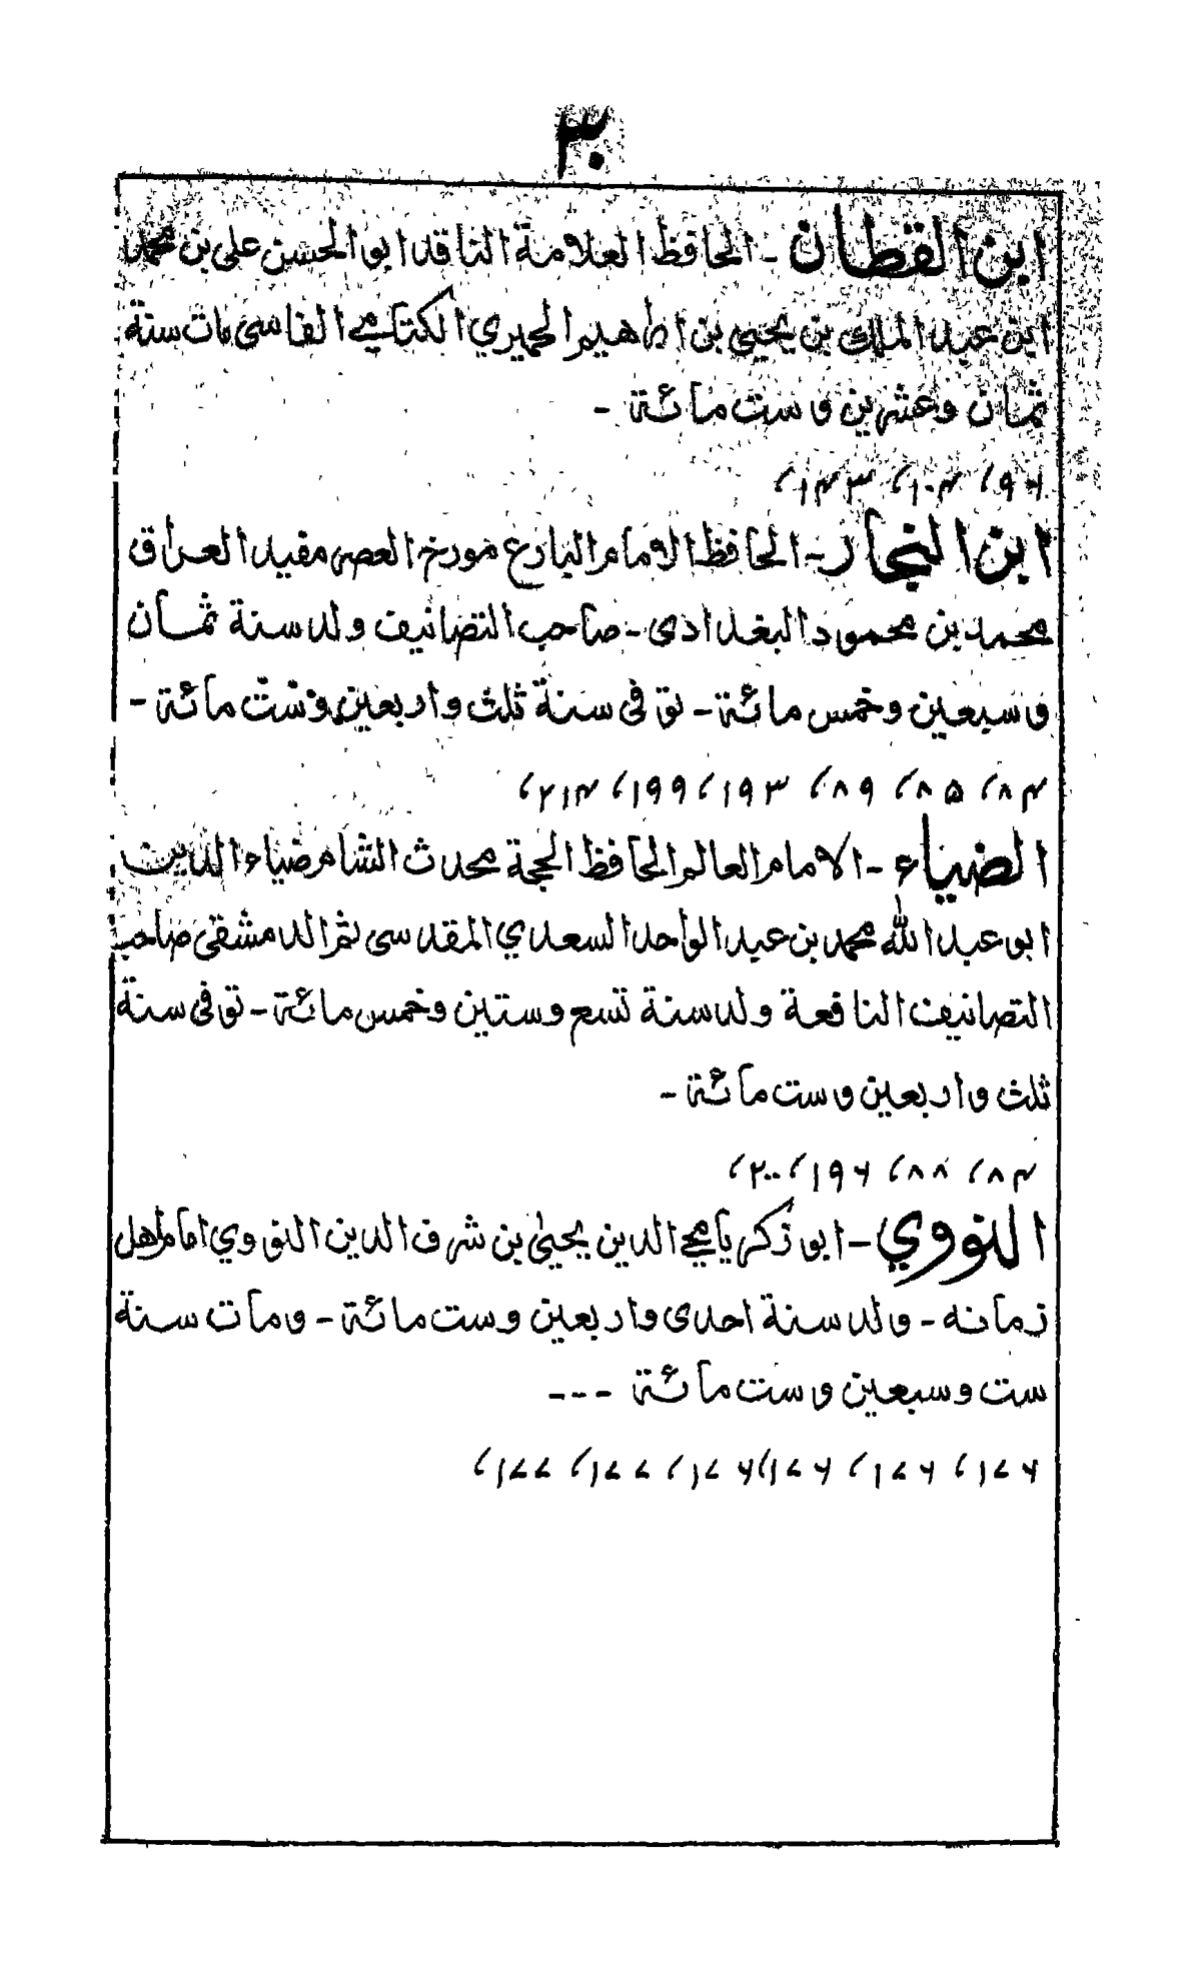 ٣٠
ابن القطان - الحافظ العلامة الناقد ابو الحسن على بن محمد
ابن عبد الملك بن يحيى بن اطهير الحميري الكتامي الفاسى مات سنة
ثمان وعشرين و ست مائة -
٩٦، ١٠٤، ١٤٣،
ابن النجار - الحافظ الامام البارع مورخ العصر مفيد العراق
محمد بن محمود البغدادى - صاحب التصانيف ولد سنة ثمان
و سبعين وخمس مائة - توفى سنة ثلث واربعين وست مائة -
٨٤، ٨٥، ٨٩، ١٩٣، ١٩٩، ٢١٤،
الضياء - الامام العالم الحافظ الحجة محدث الشام ضياء الدين
ابو عبد الله محمد بن عبد الواحد السعدي المقدسى ثم الدمشقى صاحب
التصانيف النافعة ولد سنة تسع وستين وخمس مائة - توفى سنة
ثلث و اربعين و ست مائة -
٨٤، ٨٨، ١٩٦، ٢٠٠،
النووي - ابو زكريا محي الدين يحيىٰ بن شرف الدين النووي امام اهل
زمانه - ولد سنة احدى واربعين وست مائة - ومات سنة
ست وسبعين و ست مائة ---
١٧٦، ١٧٦، ١٧٦، ١٧٦، ١٧٧، ١٧٧،